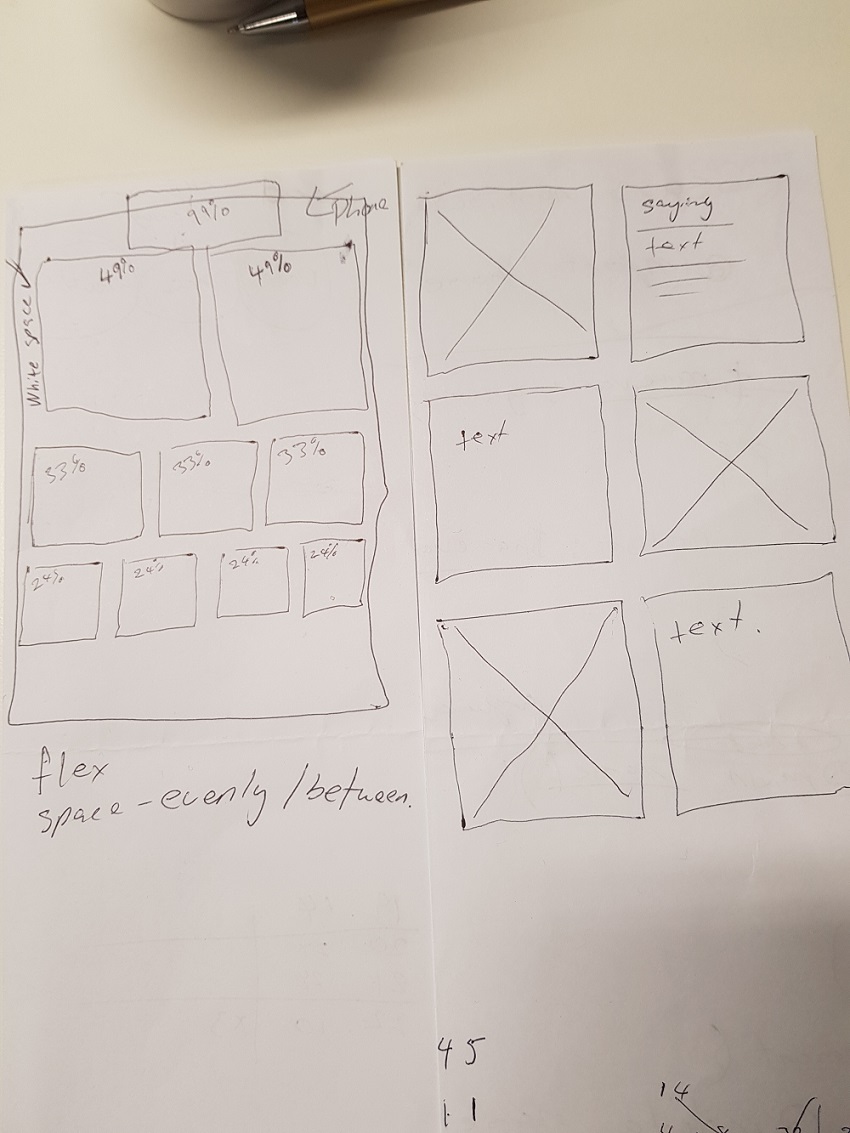 99%
phone
49%
49%
White space
33%
33%
33%
24%
24%
24%
24%
flex
space-evenly/between.
saying
text
text
text.
45
11
14